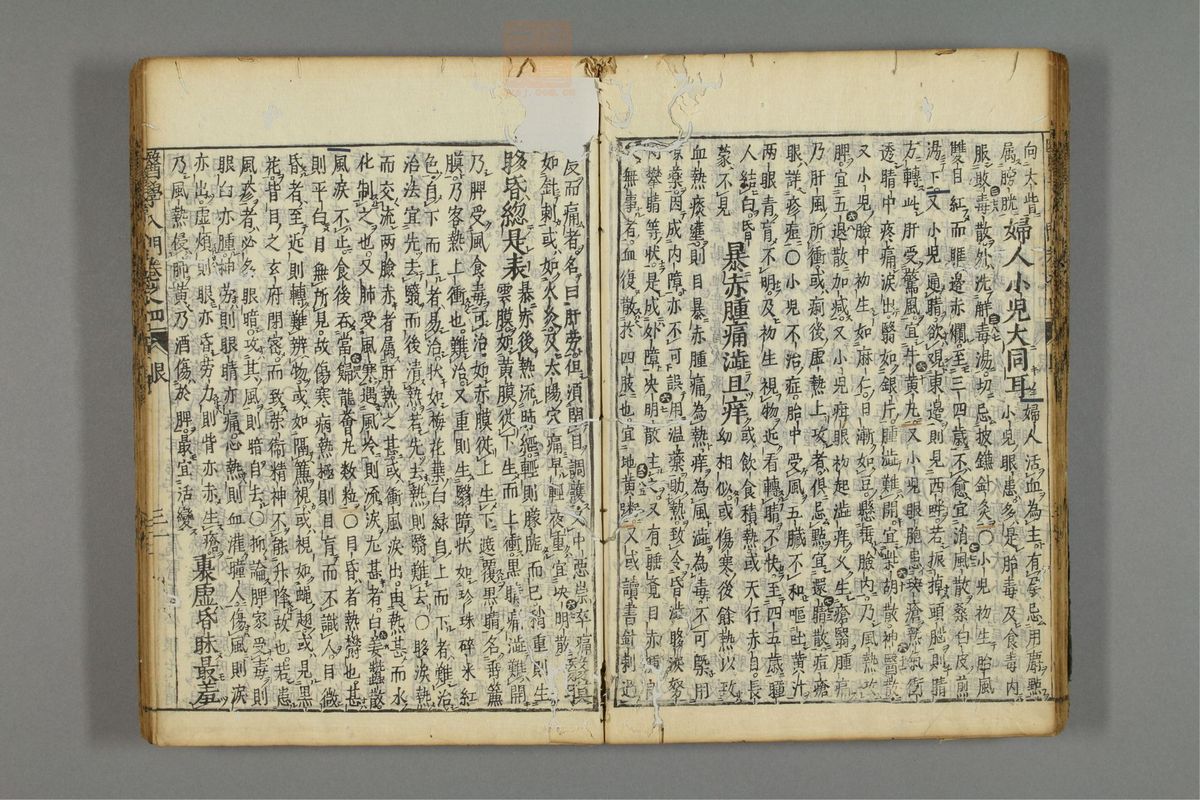 向太眥屬膀胱婦人小兒大同耳婦人活血為主有孕忌用麝點小兒眼患多是胎毒及食毒內
服敗毒散外洗解毒湯切忌披鐮針灸○小兒初生胎風
雙目紅而眶邊赤爛至三四歲不愈宜消風散桑白皮煎
湯下又小兒通睛欲觀東邊則見西畔若振掉頭腦則睛
方轉此肝受驚風宜牛黃丸又小兒眼胞患瘡熱氣衝
透睛中疼痛淚出翳如銀片腫澁難開宜柴胡散神醫散
又小兒臉中初生如麻仁日漸如豆懸毒臉內乃風熱攻
脾宜五退散加減又小兒疳眼初起澁痒又生瘡翳腫痛
乃肝風所衝或痢後虛熱上攻者俱忌點宜還睛散痘瘡
眼詳疹痘○小兒不治症胎中受風五臟不和嘔出黃汁
兩眼青盲不明及初生視物近看轉睛不快至四五歲瞳
人結白昏蒙不見暴赤腫痛澁且痒或飲食積熱或天行赤目長幼相似或傷寒後餘熱以致
血熱痰壅則目暴赤腫痛為熱痒為風澁為毒不可槩用
涼藥因成內障亦不可誤用溫藥助熱致令昏澁眵淚努
肉攀睛等狀是成外障決明散主之又有睡覺目赤腫
無事者血復散於四肢也宜地黃粥又或讀書針刺過
反而痛者名曰肝勞但須閉目調護中惡祟卒痛
如針刺或如火炙及太陽穴痛早輕夜重宜決明散
眵昏總是表暴赤後熱流肺經輕則朦朧而已稍重則生雲膜如黃膜從下生而上衝黑睛痛澁難開
乃脾受風食毒可治如赤膜從上生下遮覆黑睛名垂簾
膜乃客熱上衝也難治又重則生翳障狀如珍珠碎米紅
色自下而上者易治狀如梅花葉白綠自上而下者難治
治法宜先去翳而後清熱若先去熱則翳難去○眵淚熱
而交流兩臉赤者屬肝熱之甚或衝風淚出由熱甚而水
化制之也又肺受風寒遇風冷則流淚尤甚者白姜蠶散
風淚不止食後吞當歸龍薈丸數粒○目昏者熱欝也甚
則平白目無所見故傷寒病熱極則目盲而不識人目微
昏者至近則轉難辨物或如隔簾視或視如蠅翅或見黑
花皆目之玄府閉密而致榮衛精神不能升降故也若患
風疹者必多眼暗攻其風則暗自去○抑論脾家受毒則
眼白亦腫神勞則眼睛亦痛心熱則血灌瞳人傷風則淚
亦出虛煩則眼亦昏勞力則眥亦赤生瘡
乃風熱侵肺黃乃酒傷於脾最宜活變裏虛昏眛最羞
醫學入門卷之四
眼
三